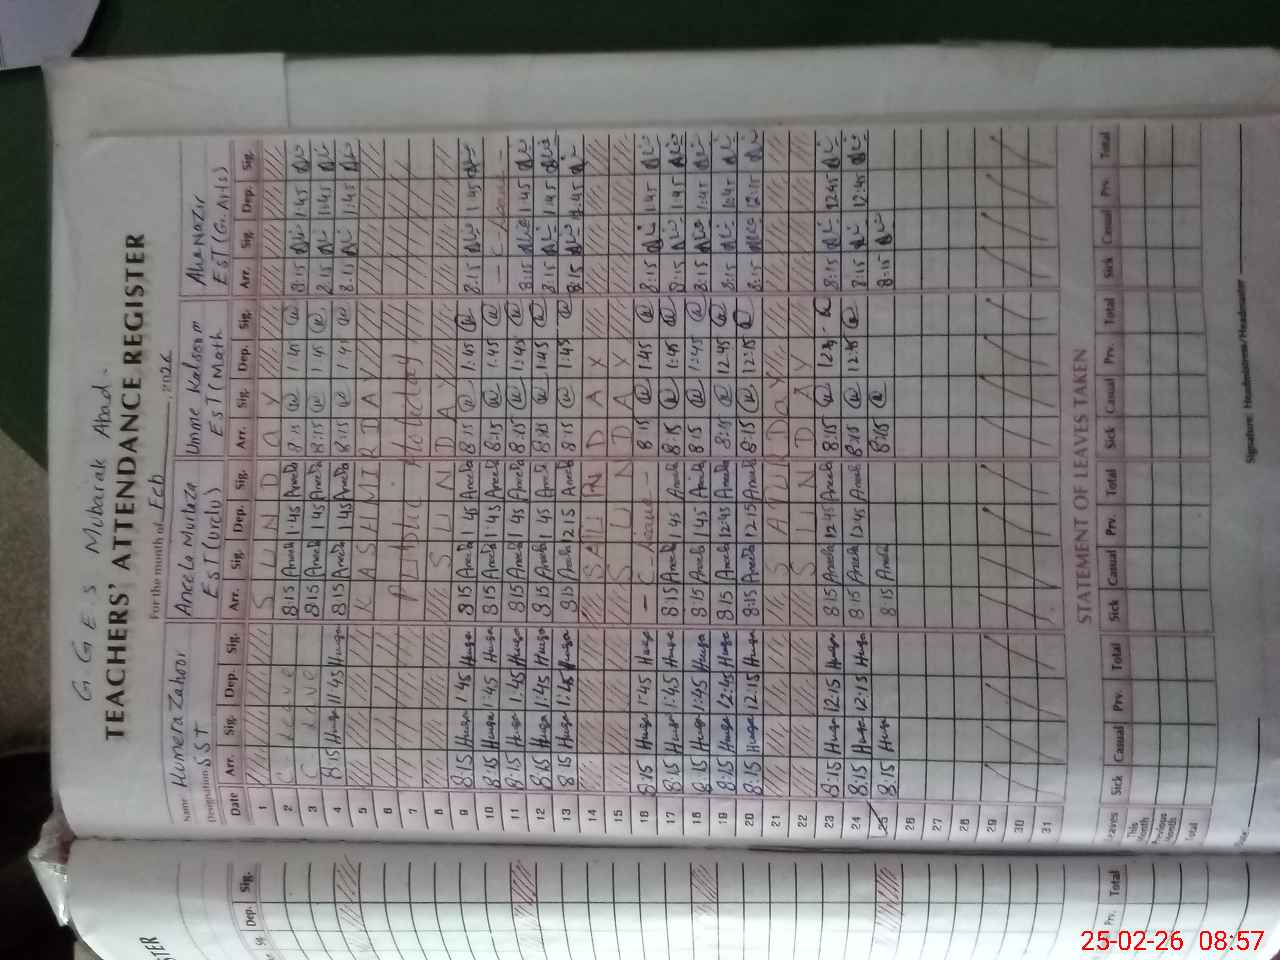 G G E S Mubarak Abad.
TEACHERS' ATTENDANCE REGISTER
For the month of Feb, 2026
Name Humera Zahoor Aneela Murtaza Umme Kalsoom
Designation SST EST (urdu) EST (Math
Date Arr. Sig. Dep. Sig. Arr. Sig. Dep. Sig. Arr. Sig. Dep. Sig. Arr. Sig. Dep. Sig.
1 S U N D A Y
2 C Leave 8:15 Aneela 1:45 Aneela 8:15 1:45 8:15 1:45
3 C Leave 8:15 Aneela 1:45 Aneela 8:15 1:45 8:15 1:45
4 8:15 1:45 8:15 Aneela 1:45 Aneela 8:15 1:45 8:15 1:45
5 K A S H M I R D A Y
6
7 Public Holiday
8 S U N D A Y
9 8:15 1:45 8:15 Aneela 1:45 Aneela 8:15 1:45 8:15 1:45
10 8:15 1:45 8:15 Aneela 1:45 Aneela 8:15 1:45 - C Leave -
11 8:15 1:45 8:15 Aneela 1:45 Aneela 8:15 1:45 8:15 1:45
12 8:15 1:45 8:15 Aneela 1:45 Aneela 8:15 1:45 8:15 1:45
13 8:15 1:45 8:15 Aneela 12:15 Aneela 8:15 1:45 8:15 1:45
14 D A Y
15 S U N D A Y
16 8:15 1:45 - C- Leave - 8:15 1:45 8:15 1:45
17 8:15 1:45 8:15 Aneela 1:45 Aneela 8:15 1:45 8:15 1:45
18 8:15 1:45 8:15 Aneela 1:45 Aneela 8:15 1:45 8:15 1:45
19 8:15 12:45 8:15 Aneela 12:45 Aneela 8:15 12:45 8:15
20 8:15 12:15 8:15 Aneela 12:15 Aneela 8:15 12:15 8:15 12:15
21 S A T U R D A Y
22 S U N D A Y
23 8:15 12:15 8:15 Aneela 12:45 Aneela 8:15 8:15 12:45
24 8:15 12:15 8:15 Aneela 12:45 Aneela 8:15 12:45 8:15 12:45
25 8:15 8:15 Aneela 8:15 8:15
26
27
28
29
30
31
STATEMENT OF LEAVES TAKEN
Leaves Sick Casual Prv. Total Sick Casual Prv. Total Sick Casual Prv. Total Sick Casual Prv. Total
This Month
Previous Month
Total
Signature: Headmistress/Headmaster
STER
Dep. Sig.
Prv. Total
25-02-26 08:57